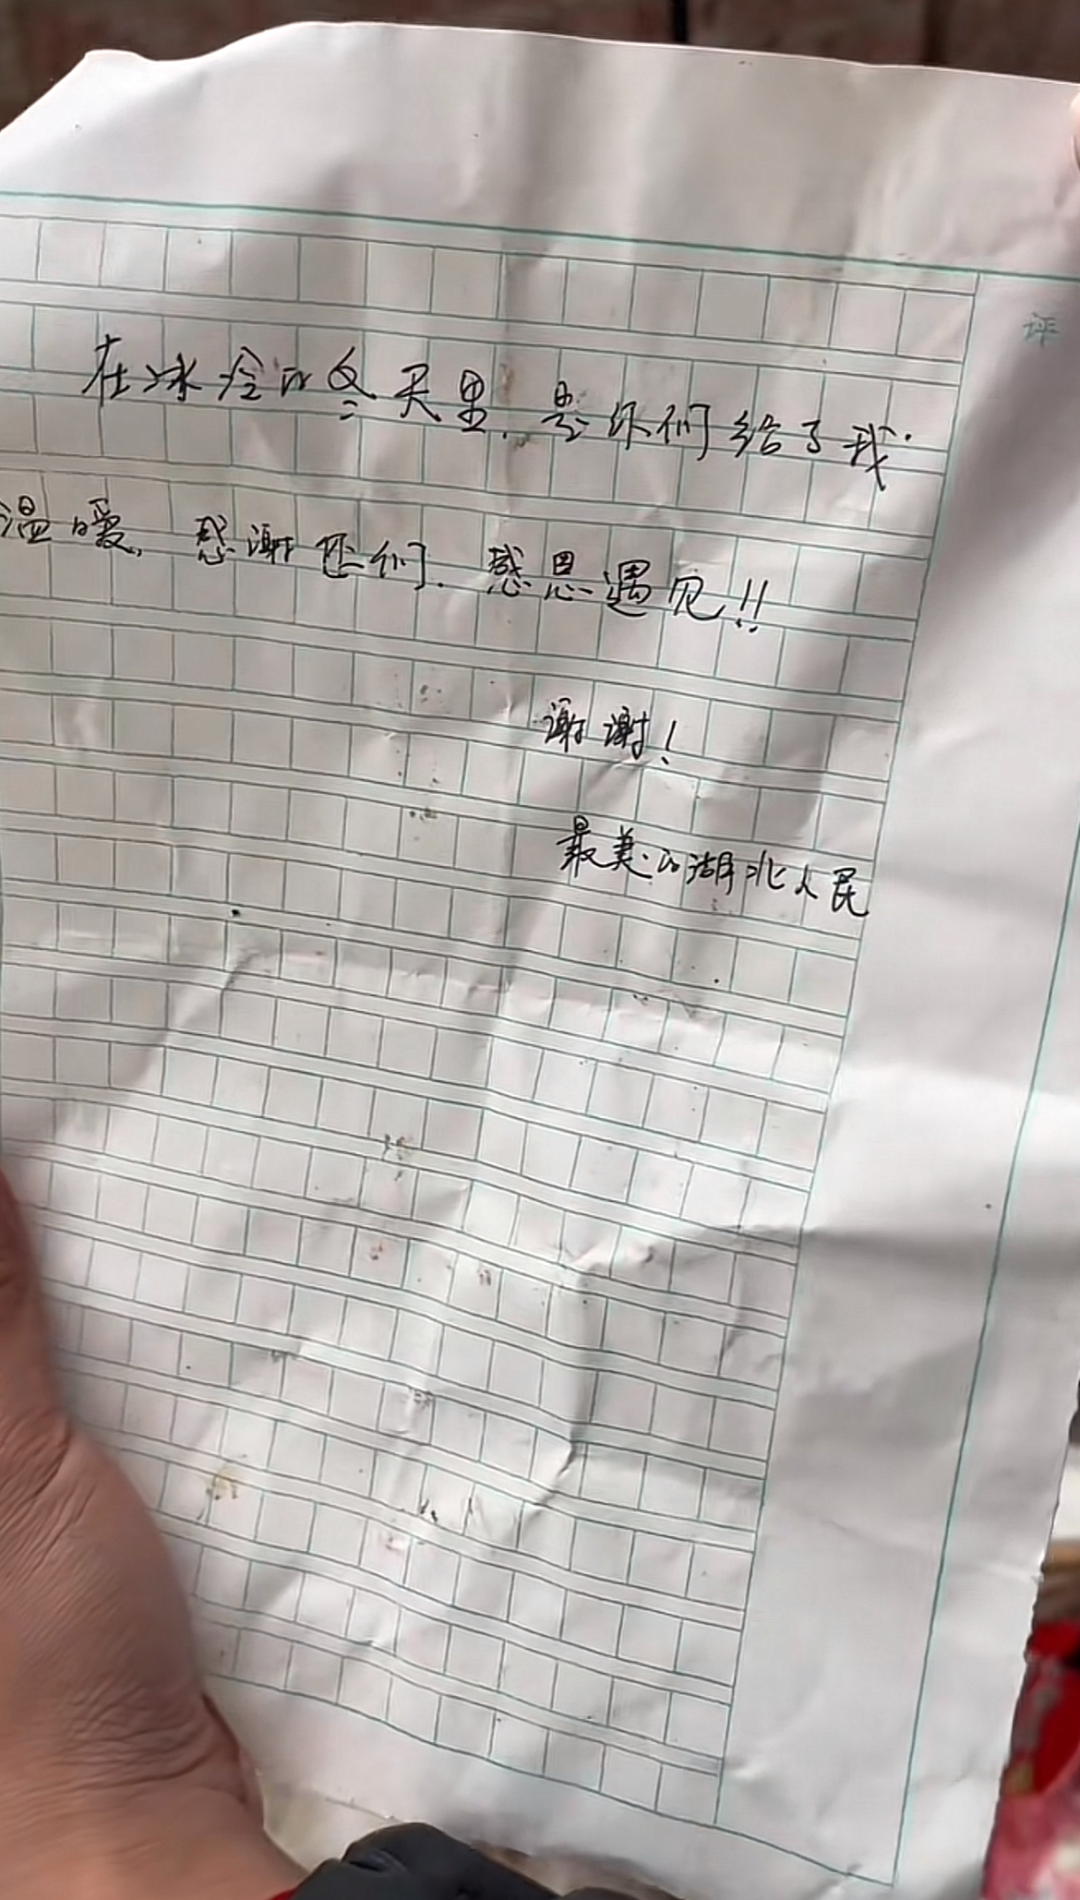 在冰冷的冬天里，是你们给了我
温暖，感谢你们，感恩遇见！！
谢谢！
最美的湖北人民
评